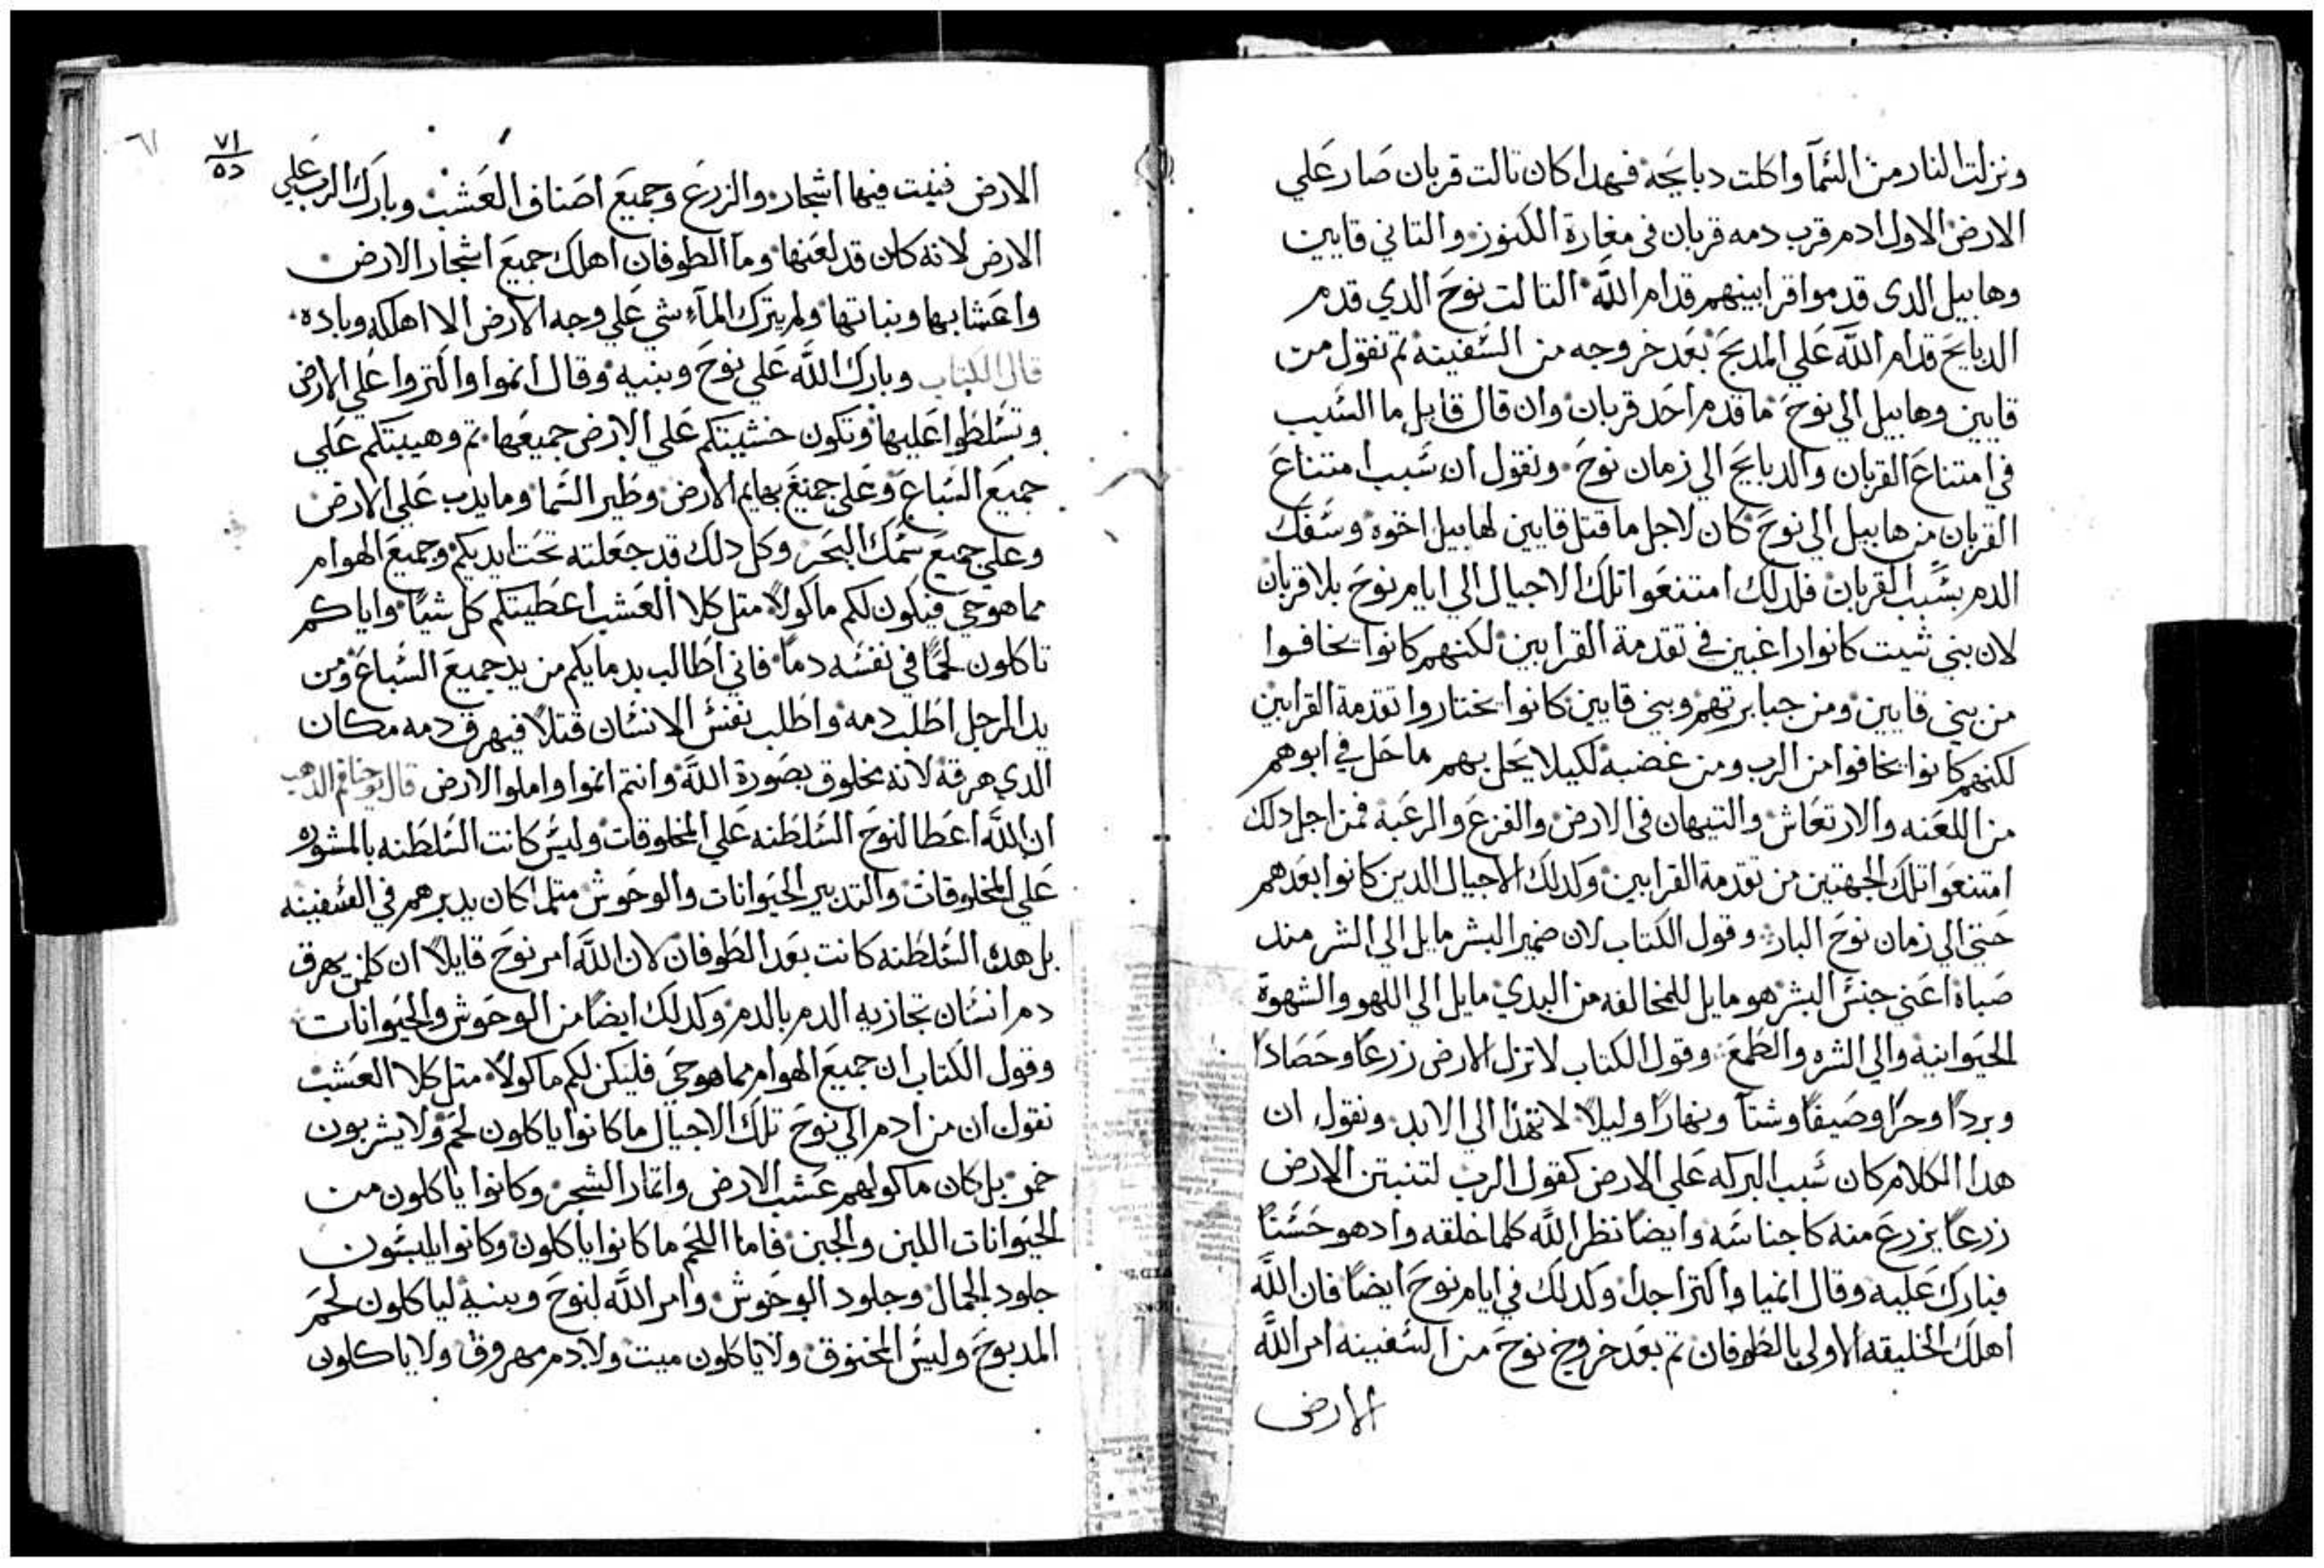 ونزلت النار من السَّمآ واكلت دبايحَه فهدا كان تالت قربان صَار عَلي
الارض الاول ادم قرب دمه قربان فى مغارة الكنوز والتاني قايين
وهابيل الدى قدموا قرابينهم قدام اللَّه التالت نوحَ الدي قدم
الدبايحَ قدام اللَّه عَلي المدبحَ بعَد خروجه من السَّفينه تم نقول من
قايين وهابيل الي نوحَ ما قدم احَد قربان وان قال قايل ما السَّبب
في امتناعَ القربان والدبايحَ الي زمان نوحَ ونقول ان سَبب امتناعَ
القربان من هابيل الي نوحَ كان لاجل ما قتل قايين لهابيل اخوه وسَفك
الدم بسَبب القربان فلدلك امتنعَوا تلك الاجيال الي ايام نوحَ بلا قربان
لان بني شيت كانوا راغبين في تقدمة القرابين لكنهم كانوا يخافوا
من بني قايين ومن جبابرتهم وبني قايين كانوا يختاروا تقدمة القرابين
لكنهم كانوا يخافوا من الرب ومن غضبه لكيلا يحَل بهم ما حَل في ابوهم
من اللعَنه والارتعَاش والتيهان فى الارض والفزعَ والرعَبة فمن اجل دلك
امتنعَوا تلك الجهتين من تقدمة القرابين وكدلك الاجيال الدين كانوا بعَدهم
حَتي الي زمان نوحَ البار وقول الكتاب لان ضمير البشر مايل الي الشر مند
صَباه اعَني جنسَ البشر هو مايل للمخالفه من البدي مايل الي اللهو والشهوة
الحيَوانيه والي الشره والطمعَ وقول الكتاب لا تزل الارض زرعًا وحَصَادًا
وبردًا وحرًا وصَيفًا وشتآ ونهارًا وليلاً لا تهدا الي الابد ونقول ان
هدا الكلام كان سَبب البركه عَلي الارض كقول الرب لتنبتن الارض
زرعًا يزرعَ منه كاجناسَه وايضًا نظر اللَّه كلما خلقه وادهو حَسَنًا
فبارك عَليه وقال انميا واكترا جدا وكدلك في ايام نوحَ ايضًا فان اللَّه
اهلك الخليقه الاولي بالطوفان تم بعَد خروج نوحَ من السَّفينه امر اللَّه
الارض
٦١
٧١
٥٥
الارض فنبت فيها اشجار والزرعَ وجميعَ اصَناف العَشب وبارك الرب عَلي
الارض لانه كان قد لعَنها وما الطوفان اهلك جميعَ اشجار الارض
واعَشابها ونباتها ولم يترك المآء شي عَلي وجه الارض الا اهلكه وباده
قال الكتاب وبارك اللَّه عَلي نوحَ وبنيه وقال انموا واكتروا عَلي الارض
وتسَلطوا عَليها وتكون خشيتكم عَلي الارض جميعَها تم وهيبتكم عَلي
جميعَ السَّباعَ وعَلي جميعَ بهايم الارض وطير السَّما وما يدب عَلي الارض
وعلي جميعَ سَمك البحَر وكل دلك قد جعَلته تحَت ايديكم وجميعَ الهوام
مما هو حي فيكون لكم ماكولاً متل كلا العَشب اعَطيتكم كل شيًا واياكم
تاكلون لحمًا في نفسَه دمًا فاني اطالب بدمايكم من يد جميعَ السَّباعَ ومن
يد الرجل اطلب دمه واطلب نفسَ الانسَان قتلاً فيهرق دمه مكان
الدي هرقه لانه مخلوق بصَورة اللَّه وانتم انموا واملوا الارض قال يوحَنا فم الدهب
ان اللَّه اعَطا لنوحَ السَّلطنه عَلي المخلوقات وليسَ كانت السَّلطنه بالمشوره
عَلي المخلوقات والتدبير الحيَوانات والوحَوش متلما كان يدبرهم في السَّفينه
بل هده السَّلطنه كانت بعَد الطوفان لان اللَّه امر نوحَ قايلاً ان كلمن يهرق
دم انسَان تجازيه الدم بالدم وكدلك ايضًا من الوحَوش والحيَوانات
وقول الكتاب ان جميعَ الهوام مما هو حَي فليكن لكم ماكولاً متل كلا العَشب
نقول ان من ادم الي نوحَ تلك الاجيال ما كانوا ياكلون لحم ولا يشربون
خمر بل كان ماكولهم عَشب الارض واتمار الشجر وكانوا ياكلون من
الحيَوانات اللبن والجبن فاما اللحَم ما كانوا ياكلون وكانوا يلبسَون
جلود الجمال وجلود الوحَوش وامر اللَّه لنوحَ وبنيه لياكلون لحَم
المدبوحَ وليسَ المخنوق ولا ياكلون ميت ولا دم مهروق ولا ياكلون